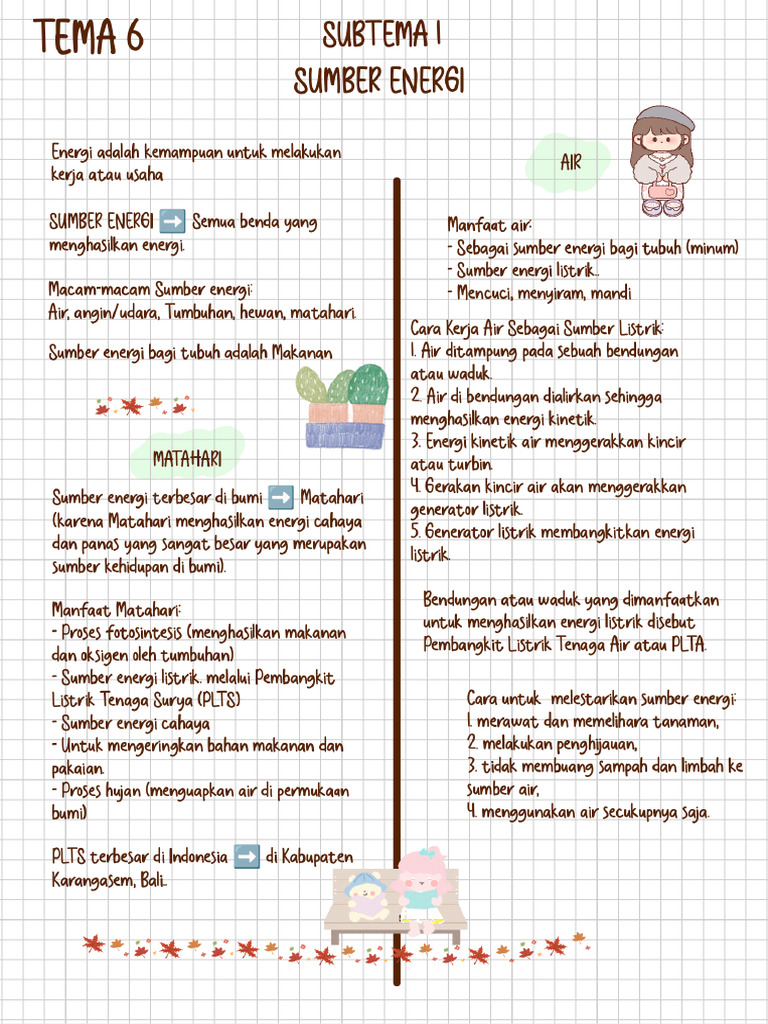 TEMA 6
SUBTEMA 1
SUMBER ENERGI
Energi adalah kemampuan untuk melakukan
kerja atau usaha
SUMBER ENERGI ➡️ Semua benda yang
menghasilkan energi.
Macam-macam Sumber energi:
Air, angin/udara, Tumbuhan, hewan, matahari.
Sumber energi bagi tubuh adalah Makanan
MATAHARI
Sumber energi terbesar di bumi ➡️ Matahari
(karena Matahari menghasilkan energi cahaya
dan panas yang sangat besar yang merupakan
sumber kehidupan di bumi).
Manfaat Matahari:
- Proses fotosintesis (menghasilkan makanan
dan oksigen oleh tumbuhan)
- Sumber energi listrik. melalui Pembangkit
Listrik Tenaga Surya (PLTS)
- Sumber energi cahaya
- Untuk mengeringkan bahan makanan dan
pakaian.
- Proses hujan (menguapkan air di permukaan
bumi)
PLTS terbesar di Indonesia ➡️ di Kabupaten
Karangasem, Bali..
AIR
Manfaat air:
- Sebagai sumber energi bagi tubuh (minum)
- Sumber energi listrik..
- Mencuci, menyiram, mandi
Cara Kerja Air Sebagai Sumber Listrik:
1. Air ditampung pada sebuah bendungan
atau waduk.
2. Air di bendungan dialirkan sehingga
menghasilkan energi kinetik.
3. Energi kinetik air menggerakkan kincir
atau turbin.
4. Gerakan kincir air akan menggerakkan
generator listrik.
5. Generator listrik membangkitkan energi
listrik.
Bendungan atau waduk yang dimanfaatkan
untuk menghasilkan energi listrik disebut
Pembangkit Listrik Tenaga Air atau PLTA.
Cara untuk melestarikan sumber energi:
1. merawat dan memelihara tanaman,
2. melakukan penghijauan,
3. tidak membuang sampah dan limbah ke
sumber air,
4. menggunakan air secukupnya saja.